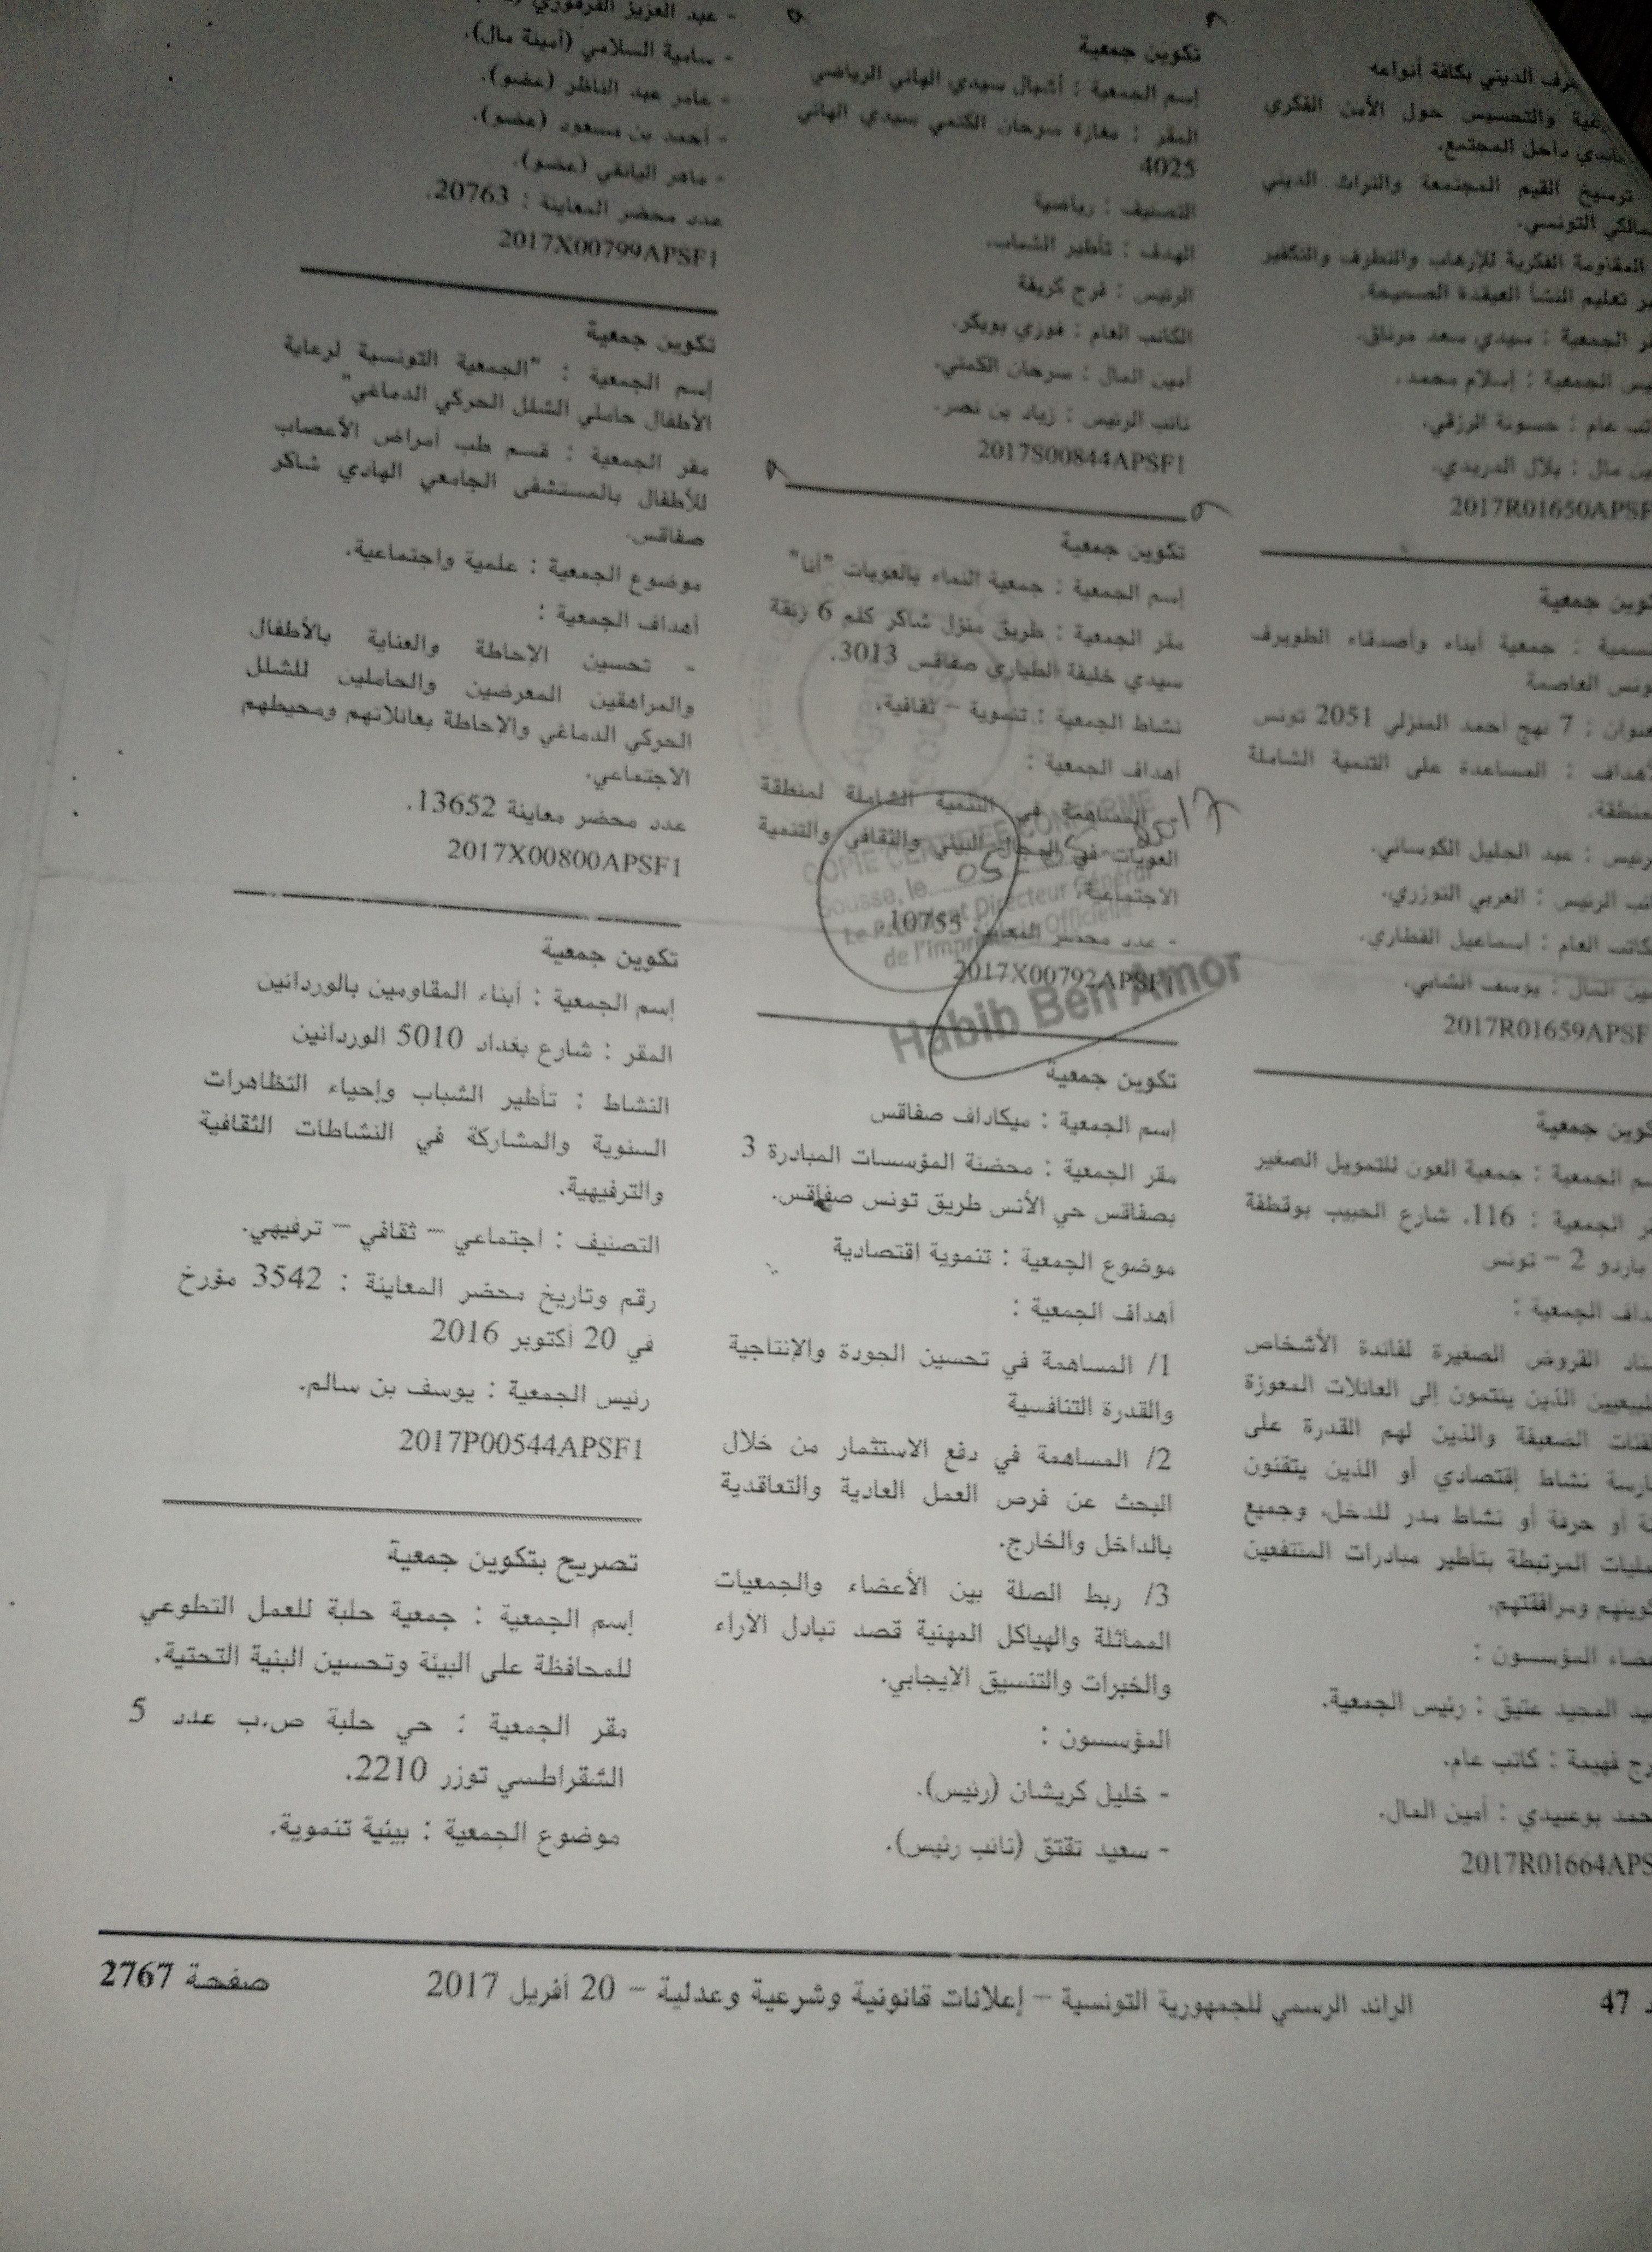 رف الديني بكافة أنواعه
والتحسيس حول الأمن الفكري
داخل المجتمع.
ترسيخ القيم المجتمعة والتراث الديني
التونسي.
المقاومة الفكرية للإرهاب والتطرف والتكفير
تعليم النشأ العقيدة الصحيحة.
الجمعية : سيدي سعد مرناق.
الجمعية : إسلام محمد.
عام : حسونة الرزقي.
مال : بلال الدريدي.
2017R01650APSF
تكوين جمعية
جمعية أبناء وأصدقاء الطويرف
تونس العاصمة
7 نهج أحمد المنزلي 2051 تونس
المساعدة على التنمية الشاملة
عبد الجليل الكوساني.
الرئيس : العربي التوزري.
العام : إسماعيل القطاري.
المال : يوسف الشابي.
2017R01659APSF
تكوين جمعية
الجمعية : جمعية العون للتمويل الصغير
الجمعية : 116، شارع الحبيب بوقطفة
باردو 2 – تونس
الجمعية :
القروض الصغيرة لفائدة الأشخاص
الذين ينتمون إلى العائلات المعوزة
الضعيفة والذين لهم القدرة على
نشاط إقتصادي أو الذين يتقنون
أو حرفة أو نشاط مدر للدخل، وجميع
المرتبطة بتأطير مبادرات المنتفعين
ومرافقتهم.
المؤسسون :
المجيد عتيق : رئيس الجمعية.
فهيمة : كاتب عام.
بوعبيدي : أمين المال.
2017R01664APS
تكوين جمعية
إسم الجمعية : أشبال سيدي الهاني الرياضي
المقر : مغازة سرحان الكتمي سيدي الهاني
4025
التصنيف : رياضية
الهدف : تأطير الشباب.
الرئيس : فرج كريفة
الكاتب العام : فوزي بوبكر.
أمين المال : سرحان الكمتي.
نائب الرئيس : زياد بن نصر.
2017S00844APSF1
تكوين جمعية
إسم الجمعية : جمعية النماء بالعوبات "أنا"
مقر الجمعية : طريق منزل شاكر كلم 6 زنقة
سيدي خليفة الطياري صفاقس 3013.
نشاط الجمعية : تنموية – ثقافية.
أهداف الجمعية :
- المساهمة في التنمية الشاملة لمنطقة
العوبات في المجال البيئي والثقافي والتنمية
الاجتماعية.
- عدد محضر المعاينة 10755
2017X00792APSF1
COPIE CERTIFIEE CONFORME
Sousse, le
Le Président Directeur Général
de l'Imprimerie Officielle
Habib Ben Amor
تكوين جمعية
إسم الجمعية : ميكاداف صفاقس
مقر الجمعية : محضنة المؤسسات المبادرة 3
بصفاقس حي الأنس طريق تونس صفاقس.
موضوع الجمعية : تنموية اقتصادية
أهداف الجمعية :
1/ المساهمة في تحسين الجودة والإنتاجية
والقدرة التنافسية
2/ المساهمة في دفع الاستثمار من خلال
البحث عن فرص العمل العادية والتعاقدية
بالداخل والخارج.
3/ ربط الصلة بين الأعضاء والجمعيات
المماثلة والهياكل المهنية قصد تبادل الآراء
والخبرات والتنسيق الايجابي.
المؤسسون :
- خليل كريشان (رئيس).
- سعيد تقتق (نائب رئيس).
- عبد العزيز الفرفوري
- سامية السلامي (أمينة مال).
- عامر عبد الناظر (عضو).
- أحمد بن مسعود (عضو).
- ماهر اليانقي (عضو).
عدد محضر المعاينة : 20763.
2017X00799APSF1
تكوين جمعية
إسم الجمعية : "الجمعية التونسية لرعاية
الأطفال حاملي الشلل الحركي الدماغي"
مقر الجمعية : قسم طب أمراض الأعصاب
للأطفال بالمستشفى الجامعي الهادي شاكر
صفاقس.
موضوع الجمعية : علمية واجتماعية.
أهداف الجمعية :
- تحسين الإحاطة والعناية بالأطفال
والمراهقين المعرضين والحاملين للشلل
الحركي الدماغي والإحاطة بعائلاتهم ومحيطهم
الاجتماعي.
عدد محضر معاينة 13652.
2017X00800APSF1
تكوين جمعية
إسم الجمعية : أبناء المقاومين بالوردانين
المقر : شارع بغداد 5010 الوردانين
النشاط : تأطير الشباب وإحياء التظاهرات
السنوية والمشاركة في النشاطات الثقافية
والترفيهية.
التصنيف : اجتماعي – ثقافي – ترفيهي.
رقم وتاريخ محضر المعاينة : 3542 مؤرخ
في 20 أكتوبر 2016
رئيس الجمعية : يوسف بن سالم.
2017P00544APSF1
تصريح بتكوين جمعية
إسم الجمعية : جمعية حلبة للعمل التطوعي
للمحافظة على البيئة وتحسين البنية التحتية.
مقر الجمعية : حي حلبة ص.ب عدد 5
الشقراطسي توزر 2210.
موضوع الجمعية : بيئية تنموية.
47
الرائد الرسمي للجمهورية التونسية – إعلانات قانونية وشرعية وعدلية – 20 أفريل 2017
صفحة 2767